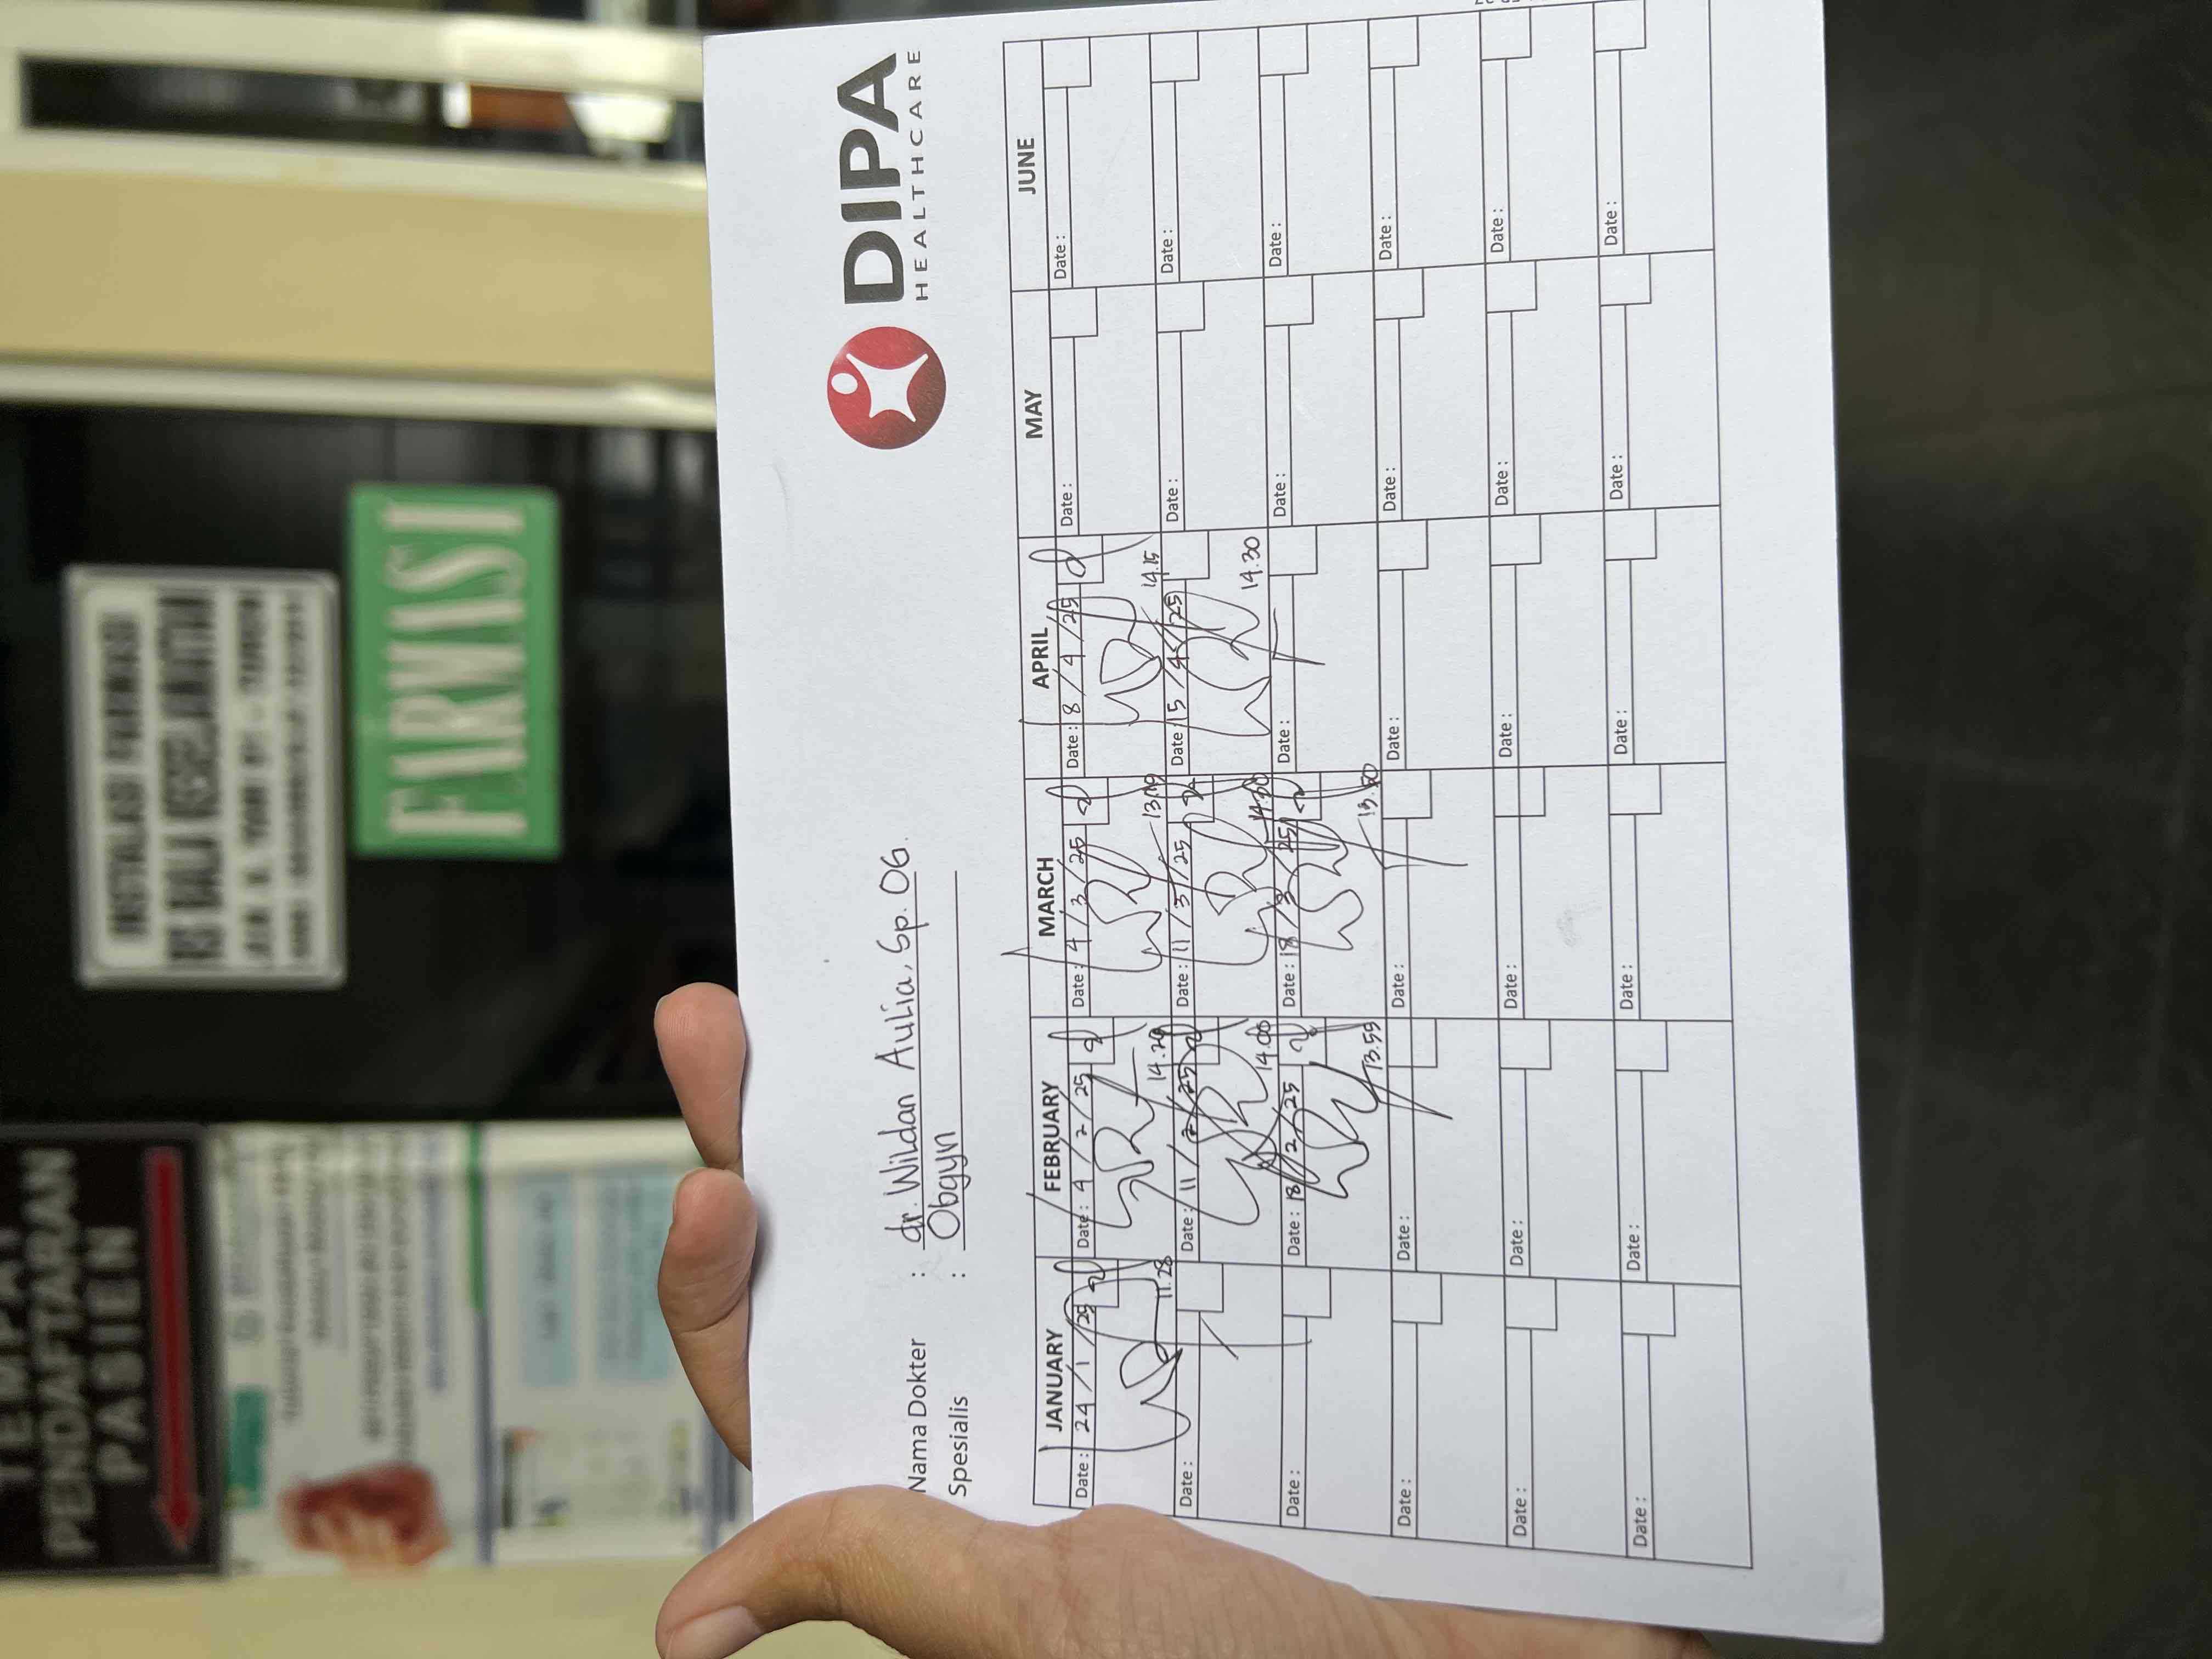 DIPA
HEALTHCARE
Nama Dokter : dr. Wildan Aulia, Sp. OG.
Spesialis : Obgyn
JANUARY FEBRUARY MARCH APRIL MAY JUNE
Date : 24 / 1 / 25 Date : 4 / 2 / 25 Date : 4 / 3 / 25 Date : 8 / 4 / 25 Date : Date :
11.28 14.20 14.15
Date : Date : 11 / 2 / 25 Date : 11 / 3 / 25 Date : 15 / 4 / 25 Date : Date :
14.00 14.30
Date : Date : 18 / 2 / 25 Date : 18 / 3 / 25 Date : Date : Date :
13.55 13.50
Date : Date : Date : Date : Date : Date :
Date : Date : Date : Date : Date : Date :
Date : Date : Date : Date : Date : Date :
INSTALASI FARMASI
FARMASI
TEMPAT
PENDAFTARAN
PASIEN